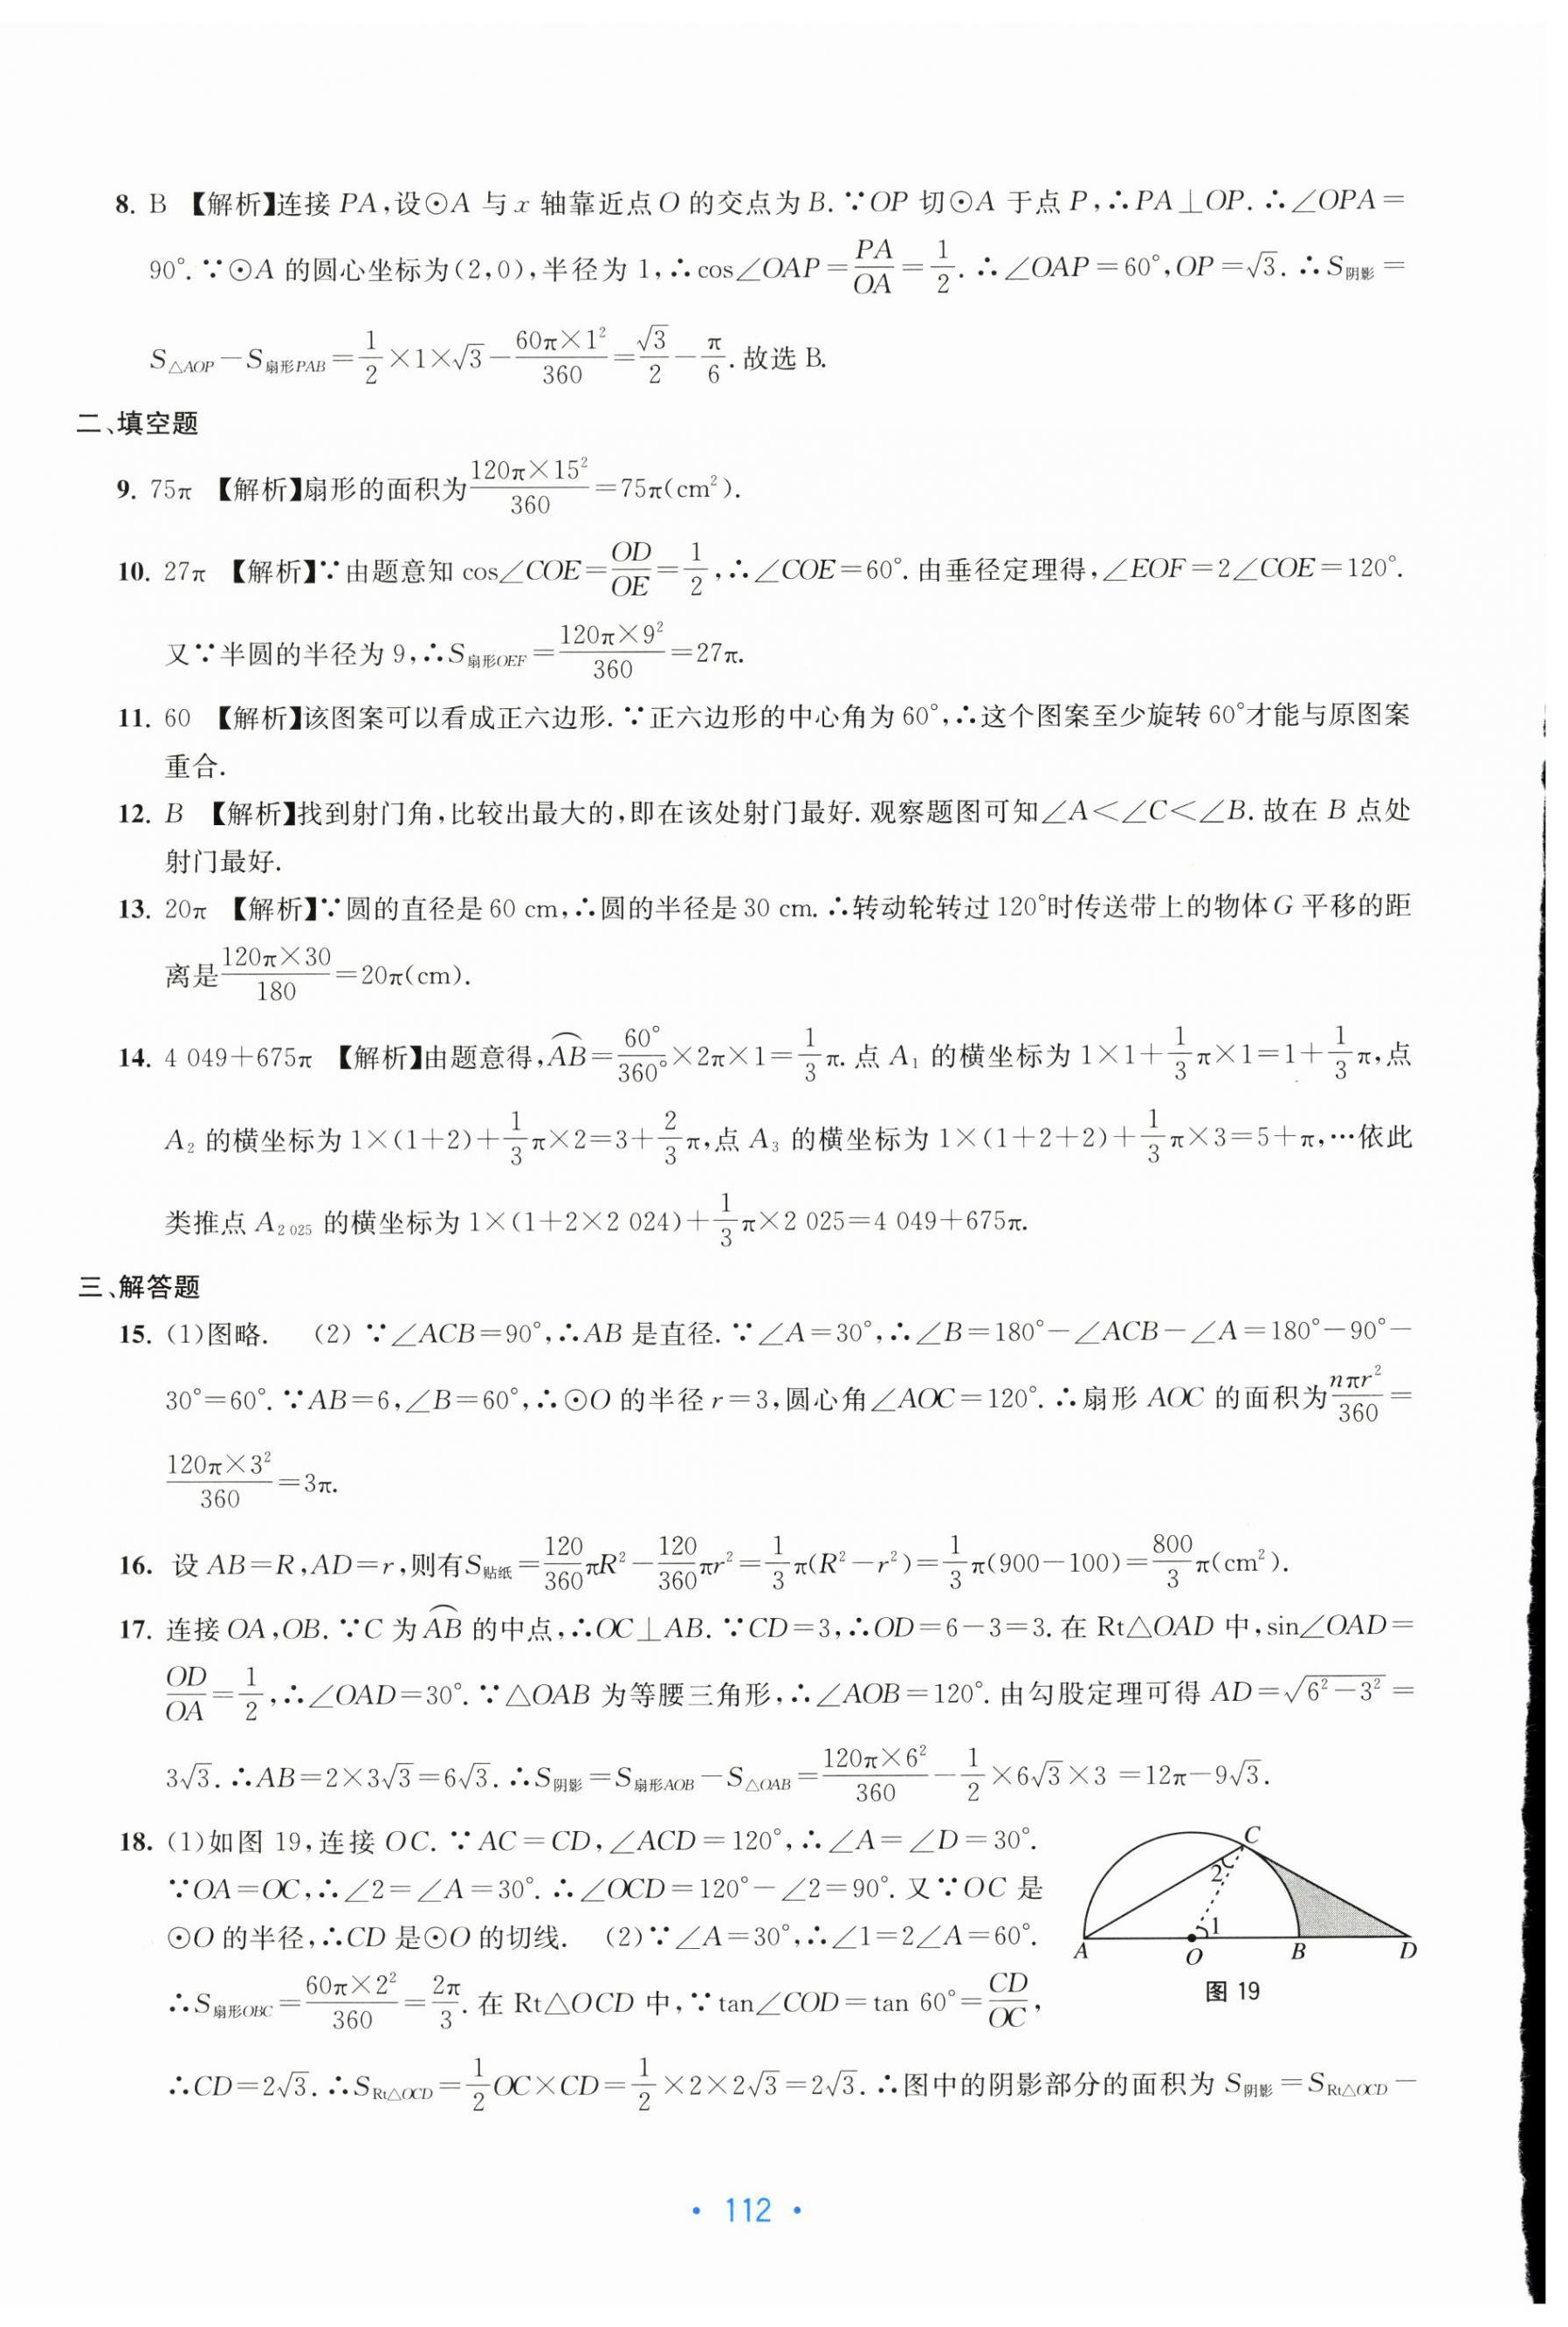 8. B 【解析】连接 PA,设⊙A 与 x 轴靠近点 O 的交点为 B. ∵OP 切⊙A 于点 P,∴PA⊥OP. ∴∠OPA=
90°. ∵⊙A 的圆心坐标为(2,0),半径为 1,∴cos∠OAP=PA/OA=1/2. ∴∠OAP=60°,OP=√3. ∴S阴影=
S△AOP-S扇形PAB=1/2×1×√3-(60π×1²)/360=√3/2-π/6. 故选 B.
二、填空题
9. 75π 【解析】扇形的面积为(120π×15²)/360=75π(cm²).
10. 27π 【解析】∵由题意知 cos∠COE=OD/OE=1/2,∴∠COE=60°. 由垂径定理得,∠EOF=2∠COE=120°.
又∵半圆的半径为 9,∴S扇形OEF=(120π×9²)/360=27π.
11. 60 【解析】该图案可以看成正六边形. ∵正六边形的中心角为 60°,∴这个图案至少旋转 60°才能与原图案
重合.
12. B 【解析】找到射门角,比较出最大的,即在该处射门最好. 观察题图可知∠A<∠C<∠B. 故在 B 点处
射门最好.
13. 20π 【解析】∵圆的直径是 60 cm,∴圆的半径是 30 cm. ∴转动轮转过 120°时传送带上的物体 G 平移的距
离是(120π×30)/180=20π(cm).
14. 4 049+675π 【解析】由题意得,⌒AB=60°/360°×2π×1=1/3π. 点 A₁ 的横坐标为 1×1+1/3π×1=1+1/3π,点
A₂ 的横坐标为 1×(1+2)+1/3π×2=3+2/3π,点 A₃ 的横坐标为 1×(1+2+2)+1/3π×3=5+π,…依此
类推点 A₂ ₀₂₅ 的横坐标为 1×(1+2×2 024)+1/3π×2 025=4 049+675π.
三、解答题
15. (1)图略. (2) ∵∠ACB=90°,∴AB 是直径. ∵∠A=30°,∴∠B=180°-∠ACB-∠A=180°-90°-
30°=60°. ∵AB=6,∠B=60°,∴⊙O 的半径 r=3,圆心角∠AOC=120°. ∴扇形 AOC 的面积为nπr²/360=
(120π×3²)/360=3π.
16. 设 AB=R,AD=r,则有S贴纸=120/360πR²-120/360πr²=1/3π(R²-r²)=1/3π(900-100)=800/3π(cm²).
17. 连接 OA,OB. ∵C 为⌒AB 的中点,∴OC⊥AB. ∵CD=3,∴OD=6-3=3. 在 Rt△OAD 中,sin∠OAD=
OD/OA=1/2,∴∠OAD=30°. ∵△OAB 为等腰三角形,∴∠AOB=120°. 由勾股定理可得 AD=√(6²-3²)=
3√3. ∴AB=2×3√3=6√3. ∴S阴影=S扇形AOB-S△OAB=(120π×6²)/360-1/2×6√3×3=12π-9√3.
18. (1)如图 19,连接 OC. ∵AC=CD,∠ACD=120°,∴∠A=∠D=30°.
∵OA=OC,∴∠2=∠A=30°. ∴∠OCD=120°-∠2=90°. 又∵OC 是
⊙O 的半径,∴CD 是⊙O 的切线. (2)∵∠A=30°,∴∠1=2∠A=60°.
∴S扇形OBC=(60π×2²)/360=2π/3. 在 Rt△OCD 中,∵tan∠COD=tan 60°=CD/OC,
C
2
1
A
O
B
D
图 19
∴CD=2√3. ∴SRt△OCD=1/2OC×CD=1/2×2×2√3=2√3. ∴图中的阴影部分的面积为 S阴影=SRt△OCD-
• 112 •